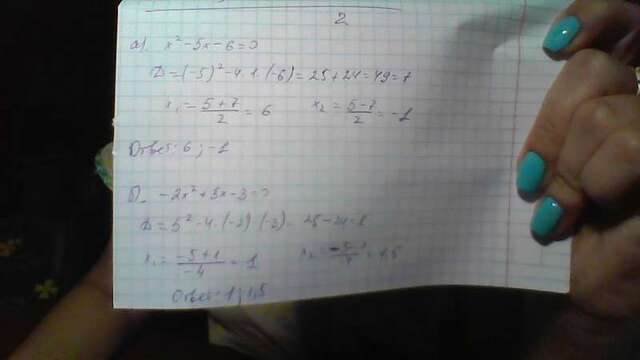 2
а). x² - 5x - 6 = 0
D = (-5)² - 4 · 1 · (-6) = 25 + 24 = 49 = 7
x₁ = (5 + 7)/2 = 6 x₂ = (5 - 7)/2 = -1
Ответ: 6 ; -1
б). -2x² + 5x - 3 = 0
D = 5² - 4 · (-2) · (-3) = 25 - 24 = 1
x₁ = (-5 + 1)/-4 = 1 x₂ = = 1,5
Ответ: 1 ; 1,5